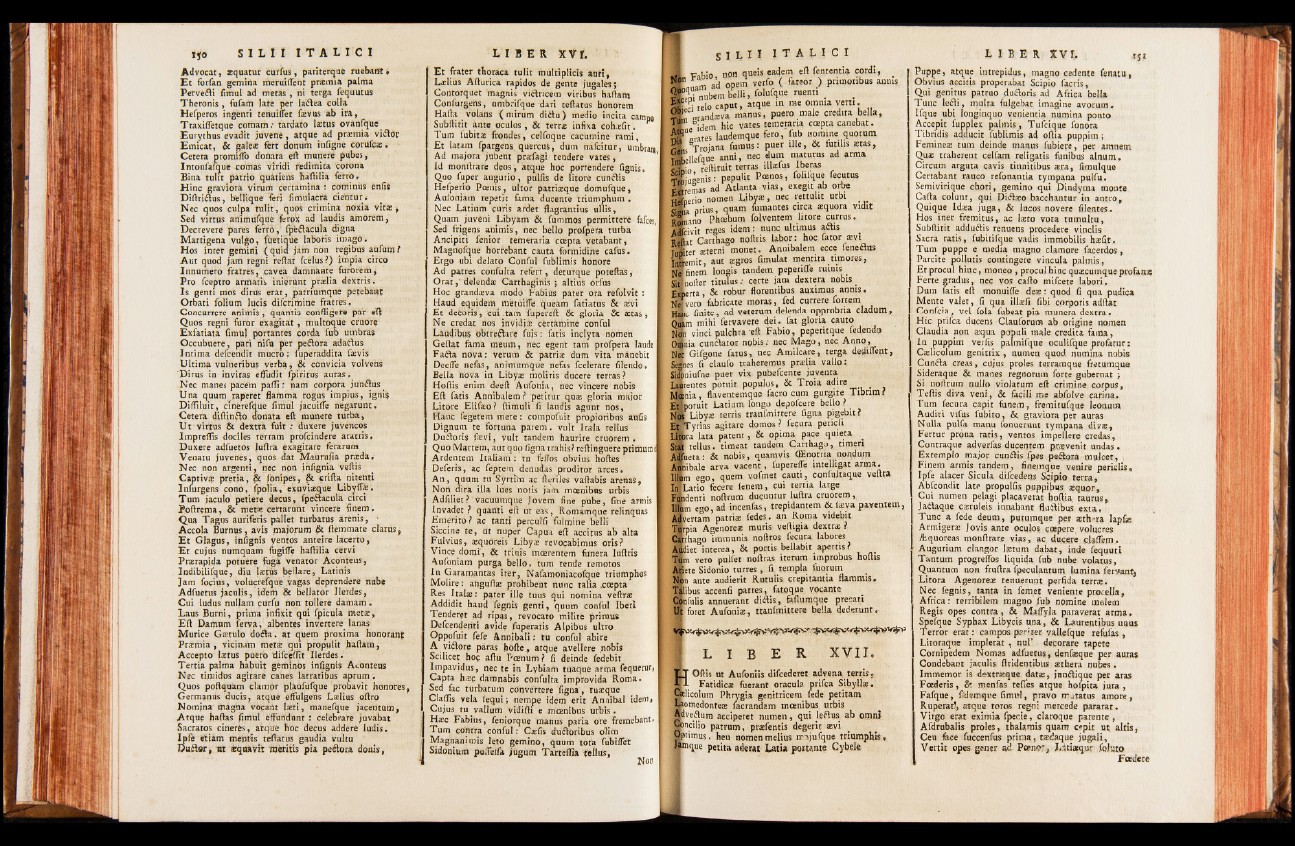 150 SILII ITALICI
Advocat, æquatur cursus, pariterque ruebant.
Et forsan gemina meruissent præmia palma
Pervecti simul ad metas, ni terga sequutus
Theronis, fusam late per lactea colla
Hesperos ingenti tenuisset sævus ab ira,
Traxissetque comam: tardato lætus ovansque
Eurythus evadit juvene, atque ad præmia victor
Emicat, & galeæ fert donum insigne coruscæ.
Cetera promisso donata est munere pubes,
Intonsasque comas viridi redimita corona
Bina tulit patrio quatiens hastilia ferro.
Hinc graviora virum certamina: cominus ensis
Districtus, bellique feri simulacra cientur.
Nec quos culpa tulit, quos crimina noxia vitæ,
Sed virtus animusque ferox ad laudis amorem,
Decrevere pares ferro, spectacula digna
Martigena vulgo, suetique laboris imago.
Hos inter gemini (quid jam non regibus ausum?
Aut quod jam regni restat scelus?) impia circo
Innumero fratres, cavea damnante furorem,
Pro sceptro armatis inierunt prælia dextris.
Is genti mos dirus erat, patriumque petebant
Orbati solium lucis discrimine fratres.
Concurrere animis, quantis confligere par est
Quos regni furor exagitat, multoque cruore
Exsatiata simul portantes corda sub umbras
Occubuere, pari nisu per pectora adactus
Intima descendit mucro: superaddita sævis
Ultima vulneribus verba, & convicia volvens
Dirus in invitas effudit spiritus auras.
Nec manes pacem passi: nam corpora junctus
Una quum raperet flamma rogus impius, ignis
Diffiluit, cineresque simul jacuisse negarunt.
Cetera distincto donata est munere turba,
Ut virtus & dextra fuit: duxere juvencos
Impressis dociles terram proscindere aratris.
Duxere adsuetos lustra exagitare ferarum
Venatu juvenes, quos dat Maurusia præda.
Nec non argenti, nec non insignia vestis
Captivæ pretia, & sonipes, & crista nitenti
Insurgens cono, spolia, exuviæque Libyssæ.
Tum jaculo petiere decus, spectacula circi
Postrema, & metæ certarunt vincere finem.
Qua Tagus auriferis pallet turbatus arenis,
Accola Burnus, avis majorum & stemmate clarus,
Et Glagus, insignis ventos anteire lacerto,
Et cujus numquam fugisse hastilia cervi
Prærapida potuere fuga venator Aconteus,
Indibilisque, diu lætus bellare, Latinis
Jam socius, volucresque vagas deprendere nube
Adsuetus jaculis, idem & bellator Ilerdes,
Cui ludus nullam cursu non tollere damam.
Laus Burni, prima infixit qui spicula metæ,
Est Damum serva, albentes invertere lanas
Murice Gætulo docta. at quem proxima honorant
Præmia, vicinam metæ qui propulit hastam,
Accepto lætus puero discessit Ilerdes.
Tertia palma habuit geminos insignis Aconteus
Nec timidos agitare canes latratibus aprum.
Quos postquam clamor plausufque probavit honores,
Germanus ducis, atque effulgens Lælius ostro
Nomina magna vocant læti, manesque jacentum,
Atque hastas simul effundunt: celebrare juvabat
Sacratos cineres, atque hoc decus addere ludis.
Ipse etiam mentis testatus gaudia vultu
Ductor, ut æquavit meritis pia pectora donis,
LIBER XVI.
Et frater thoraca tulit multiplicis auri,
Lælius Asturica rapidos de gente jugales;
Contorquet magnis victricem viribus hastam
Consurgens, umbrisque dari testatus honorem
Hasta volans (mirum dictu) medio incita campo
Substitit ante oculos, & terræ infixa cohæsit.
Tum subitæ frondes, celsoque cacumine rami,
Et latam spargens quercus, dum nascitur, umbram,
Ad majora jubent præsagi tendere vates,
Id monstrare deos, atque hoc portendere signis.
Quo super augurio, pulsis de litore cunctis
Hesperio Pœnis, ultor patriæque domusque,
Ausoniam repetit fama ducente triumphum.
Nec Latium curis ardet flagrantius ullis,
Quam juveni Libyam & summos permittere fasces,
Sed frigens animis, nec bello prospera turba
Ancipiti senior temeraria cœpta vetabant,
Magnosque horrebant cauta formidine casus.
Ergo ubi delato Consul sublimis honore
Ad patres consulta refert, deturque potestas,
Orat, delendæ Carthaginis; altius orsus
Hoc grandæva modo Fabius pater ora resolvit:
Haud equidem metuisse queam satiatus & ævi
Et decoris, cui tam superest & gloria & ætas,
Ne credat nos invidiæ certamine consul
Laudibus obtrectare suis: satis inclyta nomen
Gestat fama meum, nec egent tam prospera laude
Facta nova: verum & patriæ dum vita manebit
Deesse nefas, animumque nefas scelerare silendo.
Bella nova in Libyæ moliris ducere terras?
Hostis enim deest Ausonia, nec vincere nobis
Est satis Annibalem? petitur quæ gloria major
Litore Elissæo? stimuli si laudis agunt nos,
Hanc segetem mete: composuit propioribus ausis
Dignum te fortuna parem. vult Itala tellus
Ductoris sævi, vult tandem haurire cruorem.
Quo Martem, aut quo signa trahis? restinguere primum
Ardentem Italiam: tu fessos obvius hostes
Deseris, ac septem denudas proditor arces.
An, quum tu Syrtim ac steriles vastabis arenas,
Non dira illa lues notis jam mœnibus urbis
Adsiliet? vacuumque Jovem sine pube, sine armis
Invadet? quanti est ut eas, Romamque relinquas
Emerito? ac tanti perculsi fulmine belli
Siccine te, ut nuper Capua est accitus ab alta
Fulvius, æquoreis Libyæ revocabimus oris?
Vince domi, & trinis mœrentem funera lustris
Ausoniam purga bello. tum tende remotos
In Garamantas iter, Nasamoniacosque triumphos
Molire: angustæ prohibent nunc talia cœpta
Res Italæ: pater ille tuus qui nomina vestræ
Addidit haud segnis genti, quum consul Iberi
Tenderet ad ripas, revocato milite primus
Descendenti avide superatis Alpibus ultro
Opposuit sese Annibali: tu consul abire
A victore paras hoste, atque avellere nobis
Scilicet hoc astu Pœnum? si deinde sedebit
Impavidus, nec te in Lybiam tuaque arma sequetur,
Capta hæc damnabis consulta improvida Roma.
Sed fac turbatum convertere signa, tuæque
Classis vela sequi; nempe idem erit Annibal idem,
Cujus tu vallum vidisti e mœnibus urbis.
Hæc Fabius, seniorque manus paria ore fremebant.
Tum contra consul: Cæsis ductoribus olim
Magnanimis leto gemino, quum tota subisset
Sidonium possessa jugum Tartessia tellus,
Non
SILII ITALICI
Non Fabio, non queis eadem est sententia cordi,
Quoquam ad opem verso (fateor) primoribus annis
Excepi nubem belli, solusque ruenti
Objeci telo caput, atque in me omnia verti.
Tum grandæva manus, puero male credita bella,
Atque idem hic vates temeraria cœpta canebat.
Dis grates laudemque fero, sub nomine quorum
Gens Trojana sumus: puer ille, & futilis ætas,
Imbellesque anni, nec dum maturus ad arma
Scipio, restituit terras illæsus Iberas
Trojugenis: pepulit Pœnos, solisque secutus
Extremas ad Atlanta vias, exegit ab orbe
Hesperio nomen Libyæ, nec rettulit urbi
Signa prius, quam fumantes circa æquora vidit
Romano Phœbum solventem litore currus.
Adscivit reges idem: nunc ultimus actis
Restat Carthago nostris labor: hoc sator ævi
Jupiter æterni monet. Annibalem ecce senectus
Intremit, aut ægros simulat mentita timores,
Ne finem longis tandem peperisse ruinis
Sit noster titulus: certe jam dextera nobis
Experta, & robur florentibus auximus annis.
Ne vero fabricate moras, sed currere sortem
Hanc sinite, ad veterum delenda opprobria cladum,
Quam mihi servavere dei. sat gloria cauto
Non vinci pulchra est Fabio, peperitque sedendo
Omnia cunctator nobis: nec Mago, nec Anno,
Nec Gisgone satus, nec Amilcare, terga dedissent,
Segnes si clauso traheremus prælia vallo:
Sidoniusne puer vix pubescente juventa
Laurentes potuit populos, & Troia adire
Mœnia, flaventemque sacro cum gurgite Tibrim?
Et potuit Latium longo deposcere bello?
Nos Libyæ terris transmittere signa pigebit?
Et Tyrias agitare domos? secura pericli
Litora lata patent, & opima pace quieta
Stat tellus. timeat tandem Carthago, timeri
Adsueta: & nobis, quamvis Œnotria nondum
Annibale arva vacent, superesse intelligat arma.
Illum ego, quem vosmet cauti, consultaque vestra
In Latio fecere senem, cui tertia large
Fundenti nostrum ducuntur lustra cruorem,
Illum ego, ad incensas, trepidantem & sæva paventem,
Advertam patriæ sedes. an Roma videbit
Turpia Agenoreæ muris vestigia dextræ?
Carthago immunis nostros secura labores
Audiet interea, & portis bellabit apertis?
Tum vero pulset nostras iterum improbus hostis
Ariete Sidonio turres, si templa suorum
Non ante audierit Rutulis crepitantia flammis.
Talibus accensi patres, fatoque vocante
Consulis annuerant dictis, faustumque precati
Ut foret Ausoniæ, transmittere bella dederunt.
LIBER XVII.
HOstis ut Ausoniis discederet advena terris,
Fatidicæ fuerant oracula prisca Sibyllæ.
Cælicolum Phrygia genitricem sede petitam
Laomedonteæ sacrandam mœnibus urbis
Advectum acciperet numen, qui lectus ab omni
Concilio patrum, præsentis degerit ævi
Optimus. heu nomen melius majusque triumphis.
Jamque petita aderat Latia portante Cybele
LIBER XVI. 151
Puppe, atque intrepidus, magno cedente senatu,
Obvius accitis properabat Scipio sacris,
Qui genitus patruo ductoris ad Africa bella
Tunc lecti, multa fulgebat imagine avorum.
Isque ubi longinquo venientia numina ponto
Accepit supplex palmis, Tuscique sonora
Tibridis adducit sublimis ad ostia puppim;
Femineæ tum deinde manus subiere, per amnem
Quæ traherent celsam religatis funibus alnum.
Circum arguta cavis tinnitibus æra, simulque
Certabant rauco resonantia tympana pulsu.
Semivirique chori, gemino qui Dindyma monte
Casta colunt, qui Dictæo bacchantur in antro,
Quique Idæa juga, & lucos novere silentes.
Hos inter fremitus, ac læto vota tumultu,
Substitit adductis renuens procedere vinclis
Sacra ratis, subitisque vadis immobilis hæsit.
Tum puppe e media magno clamore sacerdos,
Parcite pollutis contingere vincula palmis,
Et procul hinc, moneo, procul hinc quæcumque profanæ
Ferte gradus, nec vos casto miscete labori.
Dum satis est monuisse deæ: quod si qua pudica
Mente valet, si qua illæsi sibi corporis adstat
Conscia, vel sola subeat pia munera dextra.
Hic prisca ducens Clausorum ab origine nomen
Claudia non æqua populi male credita fama,
In puppim versis palmisque oculisque profatur:
Cælicolum genitrix, numen quod numina nobis
Cuncta creas, cujus proles terramque fretumque
Sideraque & manes regnorum sorte gubernat;
Si nostrum nullo violatum est crimine corpus,
Testis diva veni, & facili me absolve carina.
Tum secura capit funem, fremitusque leonum
Audiri visus subito, & graviora per auras
Nulla pulsa manu sonuerunt tympana divæ,
Fertur prona ratis, ventos impellere credas,
Contraque adversas ducentem prævenit undas.
Extemplo major cunctis spes pectora mulcet,
Finem armis tandem, finemque venire periclis.
Ipse alacer Sicula discedens Scipio terra,
Abscondit late propulsis puppibus æquor,
Cui numen pelagi placaverat hostia taurus,
Jactaque cæruleis innabant fluctibus exta.
Tunc a sede deum, purumque per æthera lapsæ
Armigeræ Jovis ante oculos cœpere volucres
Æquoreas monstrare vias, ac ducere classem.
Augurium clangor lætum dabat, inde sequuti
Tantum progressos liquida sub nube volatus,
Quantum non frustra speculantum lumina servant,
Litora Agenoreæ tenuerunt perfida terræ.
Nec segnis, tanta in semet veniente procella,
Africa: terribilem magno sub nomine molem
Regis opes contra, & Massyla paraverat arma.
Spesque Syphax Libycis una, & Laurentibus unus
Terror erat: campos pariter vallesque refusas,
Litoraque implerat, nul' decorare tapete
Cornipedem Nomas adsuetus, densæque per auras
Condebant jaculis stridentibus æthera nubes.
Immemor is dextræque datæ, junctique per aras
Fœderis, & mensas testes atque hospita jura,
Fasque, fidemque simul, pravo mutatus amore,
Ruperat, atque toros regni mercede pararat.
Virgo erat eximia specie, claroque parente,
Asdrubalis proles, thalamis quam cepit ut altis,
Ceu face succensus prima, tædaque jugali,
Vertit opes gener ad Pœnos, Latiæque soluto
Fœdere